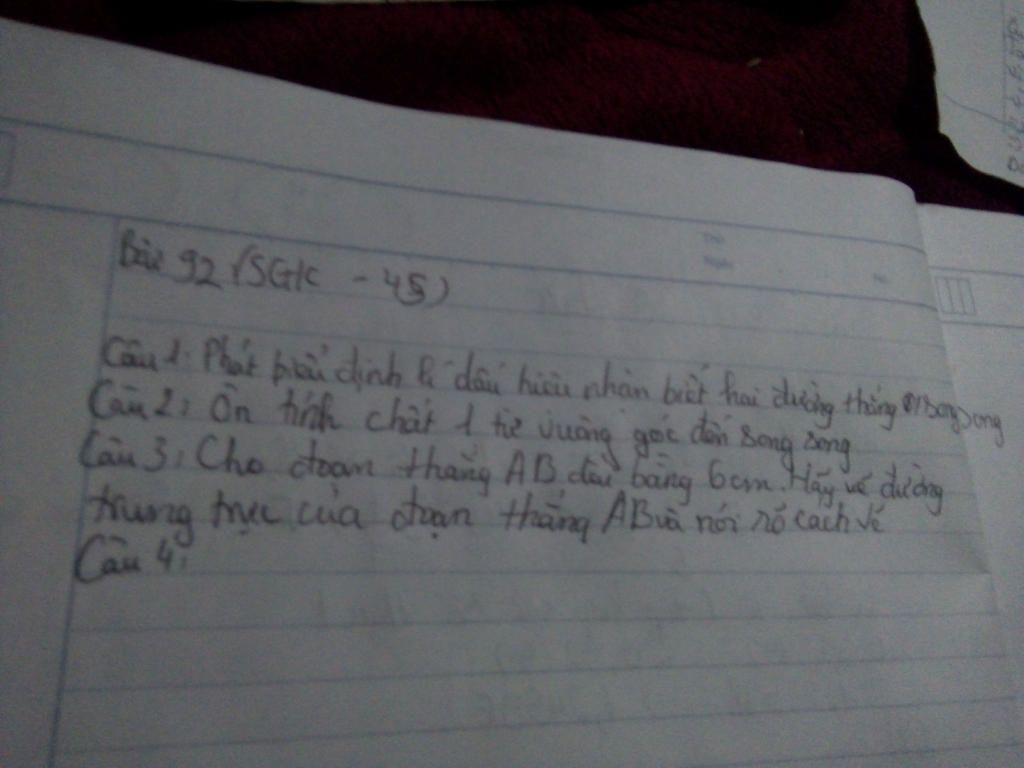 Bài 92 (SGK - 45)
Câu 1: Phát biểu định lí dấu hiệu nhận biết hai đường thẳng song song
Câu 2: Ôn tính chất 1 từ vuông góc đến song song
Câu 3: Cho đoạn thẳng AB dài bằng 6cm. Hãy vẽ đường
trung trực của đoạn thẳng AB và nói rõ cách vẽ
Câu 4: